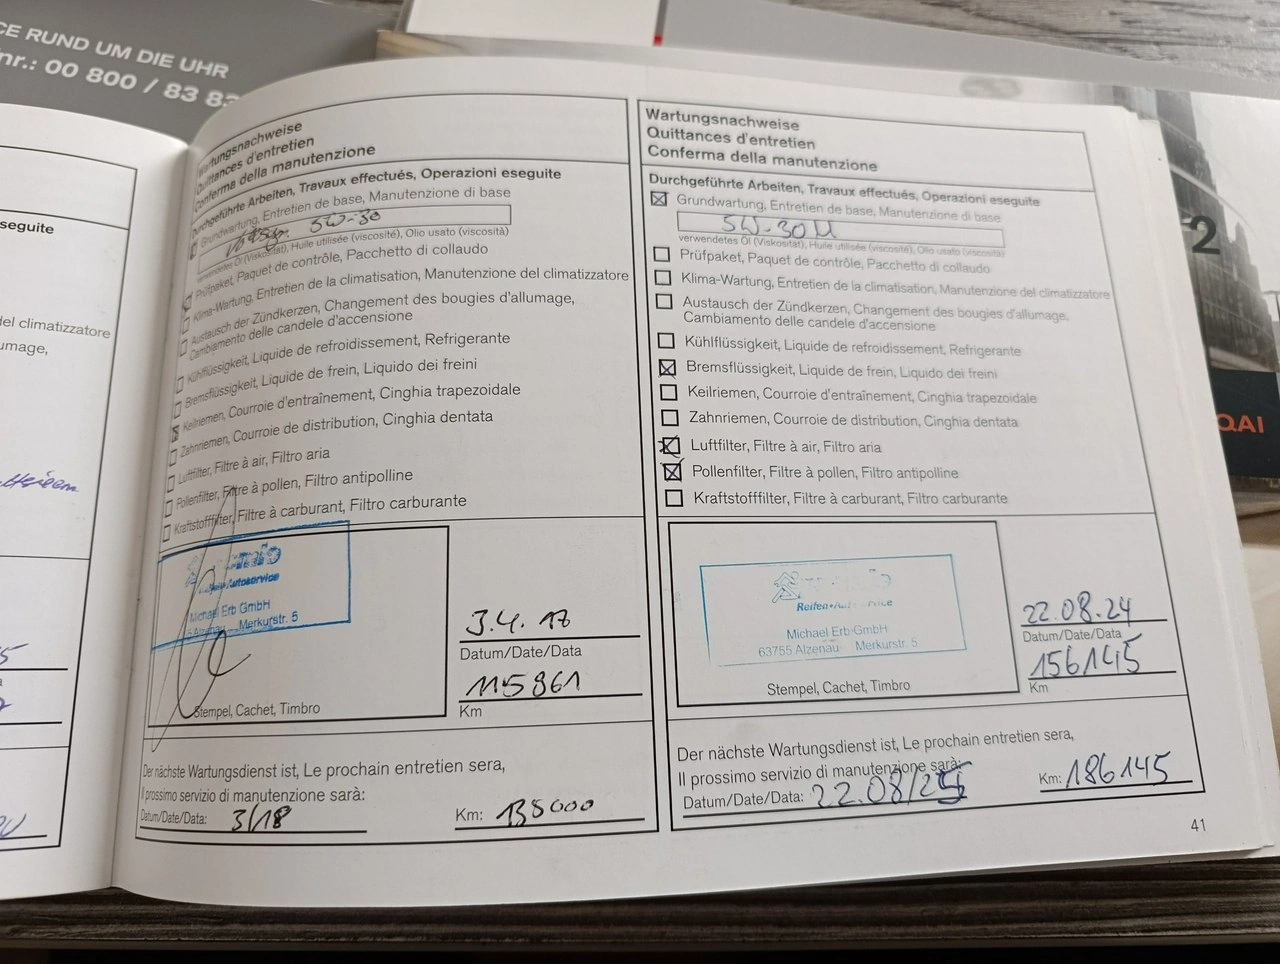 CE RUND UM DIE UHR
nr.: 00 800 / 83 83
eseguite
del climatizzatore
umage,
Wartungsnachweise
Quittances d'entretien
Conferma della manutenzione
Durchgeführte Arbeiten, Travaux effectués, Operazioni eseguite
Grundwartung, Entretien de base, Manutenzione di base
5W-30
verwendetes Öl (Viskosität), Huile utilisée (viscosité), Olio usato (viscosità)
Prüfpaket, Paquet de contrôle, Pacchetto di collaudo
Klima-Wartung, Entretien de la climatisation, Manutenzione del climatizzatore
Austausch der Zündkerzen, Changement des bougies d'allumage,
Cambiamento delle candele d'accensione
Kühlflüssigkeit, Liquide de refroidissement, Refrigerante
Bremsflüssigkeit, Liquide de frein, Liquido dei freini
Keilriemen, Courroie d'entraînement, Cinghia trapezoidale
Zahnriemen, Courroie de distribution, Cinghia dentata
Luftfilter, Filtre à air, Filtro aria
Pollenfilter, Filtre à pollen, Filtro antipolline
Kraftstofffilter, Filtre à carburant, Filtro carburante
Autoservice
Michael Erb GmbH
Alzenau Merkurstr. 5
3.4.17
Datum/Date/Data
115861
Km
Stempel, Cachet, Timbro
Der nächste Wartungsdienst ist, Le prochain entretien sera,
Il prossimo servizio di manutenzione sarà:
Datum/Date/Data: 3/18
Km: 135000
Wartungsnachweise
Quittances d'entretien
Conferma della manutenzione
Durchgeführte Arbeiten, Travaux effectués, Operazioni eseguite
Grundwartung, Entretien de base, Manutenzione di base
5W-30
verwendetes Öl (Viskosität), Huile utilisée (viscosité), Olio usato (viscosità)
Prüfpaket, Paquet de contrôle, Pacchetto di collaudo
Klima-Wartung, Entretien de la climatisation, Manutenzione del climatizzatore
Austausch der Zündkerzen, Changement des bougies d'allumage,
Cambiamento delle candele d'accensione
Kühlflüssigkeit, Liquide de refroidissement, Refrigerante
Bremsflüssigkeit, Liquide de frein, Liquido dei freini
Keilriemen, Courroie d'entraînement, Cinghia trapezoidale
Zahnriemen, Courroie de distribution, Cinghia dentata
Luftfilter, Filtre à air, Filtro aria
Pollenfilter, Filtre à pollen, Filtro antipolline
Kraftstofffilter, Filtre à carburant, Filtro carburante
Michael Erb GmbH
63755 Alzenau Merkurstr. 5
22.08.24
Datum/Date/Data
156145
Km
Stempel, Cachet, Timbro
Der nächste Wartungsdienst ist, Le prochain entretien sera,
Il prossimo servizio di manutenzione sarà:
Datum/Date/Data: 22.08/25
Km: 186145
41
2
QAI